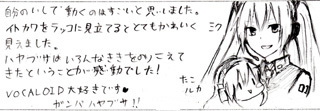 自分のいしで動くのはすごいと思いました。
イトカワをラッコに見立てるととてもかわいく
見えました。
ハヤブサはいろんなききをのりこえて
きたということが感動でした!
VOCALOID大好きです♥
ガンバハヤブサ!!
ミク
たこ
ルカ